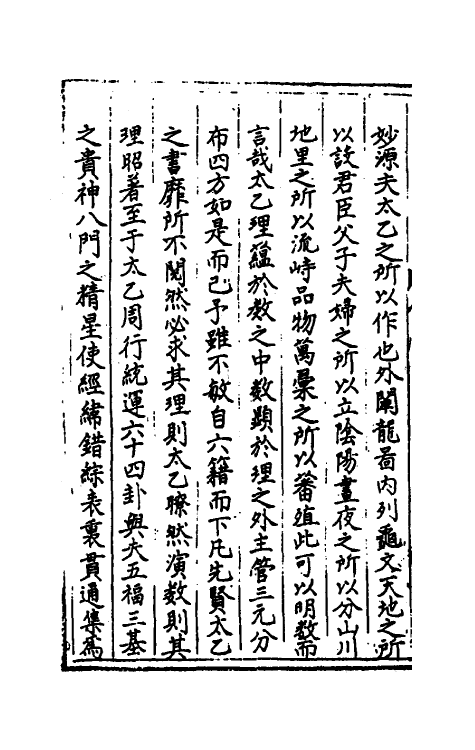 妙源夫太乙之所以作也外闡龍啚内列龜文天地之所
以設君臣父子夫婦之所以立陰陽晝夜之所以分山川
地里之所以流峙品物萬彚之所以蕃殖此可以明数而
言哉太乙理蘊於数之中数顕於理之外主管三元分
布四方如是而已予雖不敏自六籍而下凡先賢太乙
之書靡所不閲然必求其理則太乙瞭然演数則其
理昭著至于太乙周行統運六十四卦與夫五福三基
之貴神八門之精星使經緯錯綜表裏貫通集為